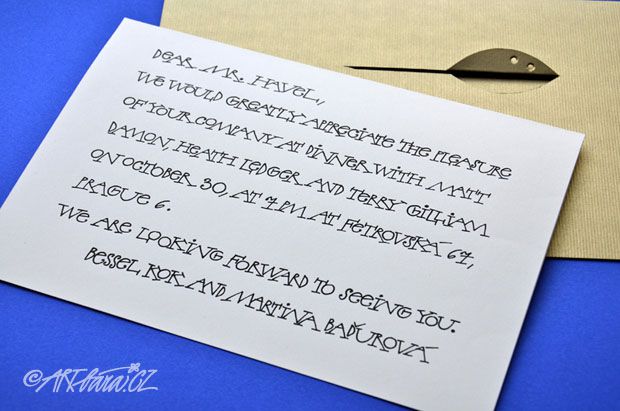 DEAR MR. HAVEL,
WE WOULD GREATLY APPRECIATE THE PLEASURE
OF YOUR COMPANY AT DINNER WITH MATT
DAMON, HEATH LEDGER AND TERRY GILLIAM
ON OCTOBER 30, AT 7PM AT PETROVSKÁ 67,
PRAGUE 6.
WE ARE LOOKING FORWARD TO SEEING YOU.
BESSEL KOK AND MARTINA BAĎUROVÁ
©ARTbara.CZ